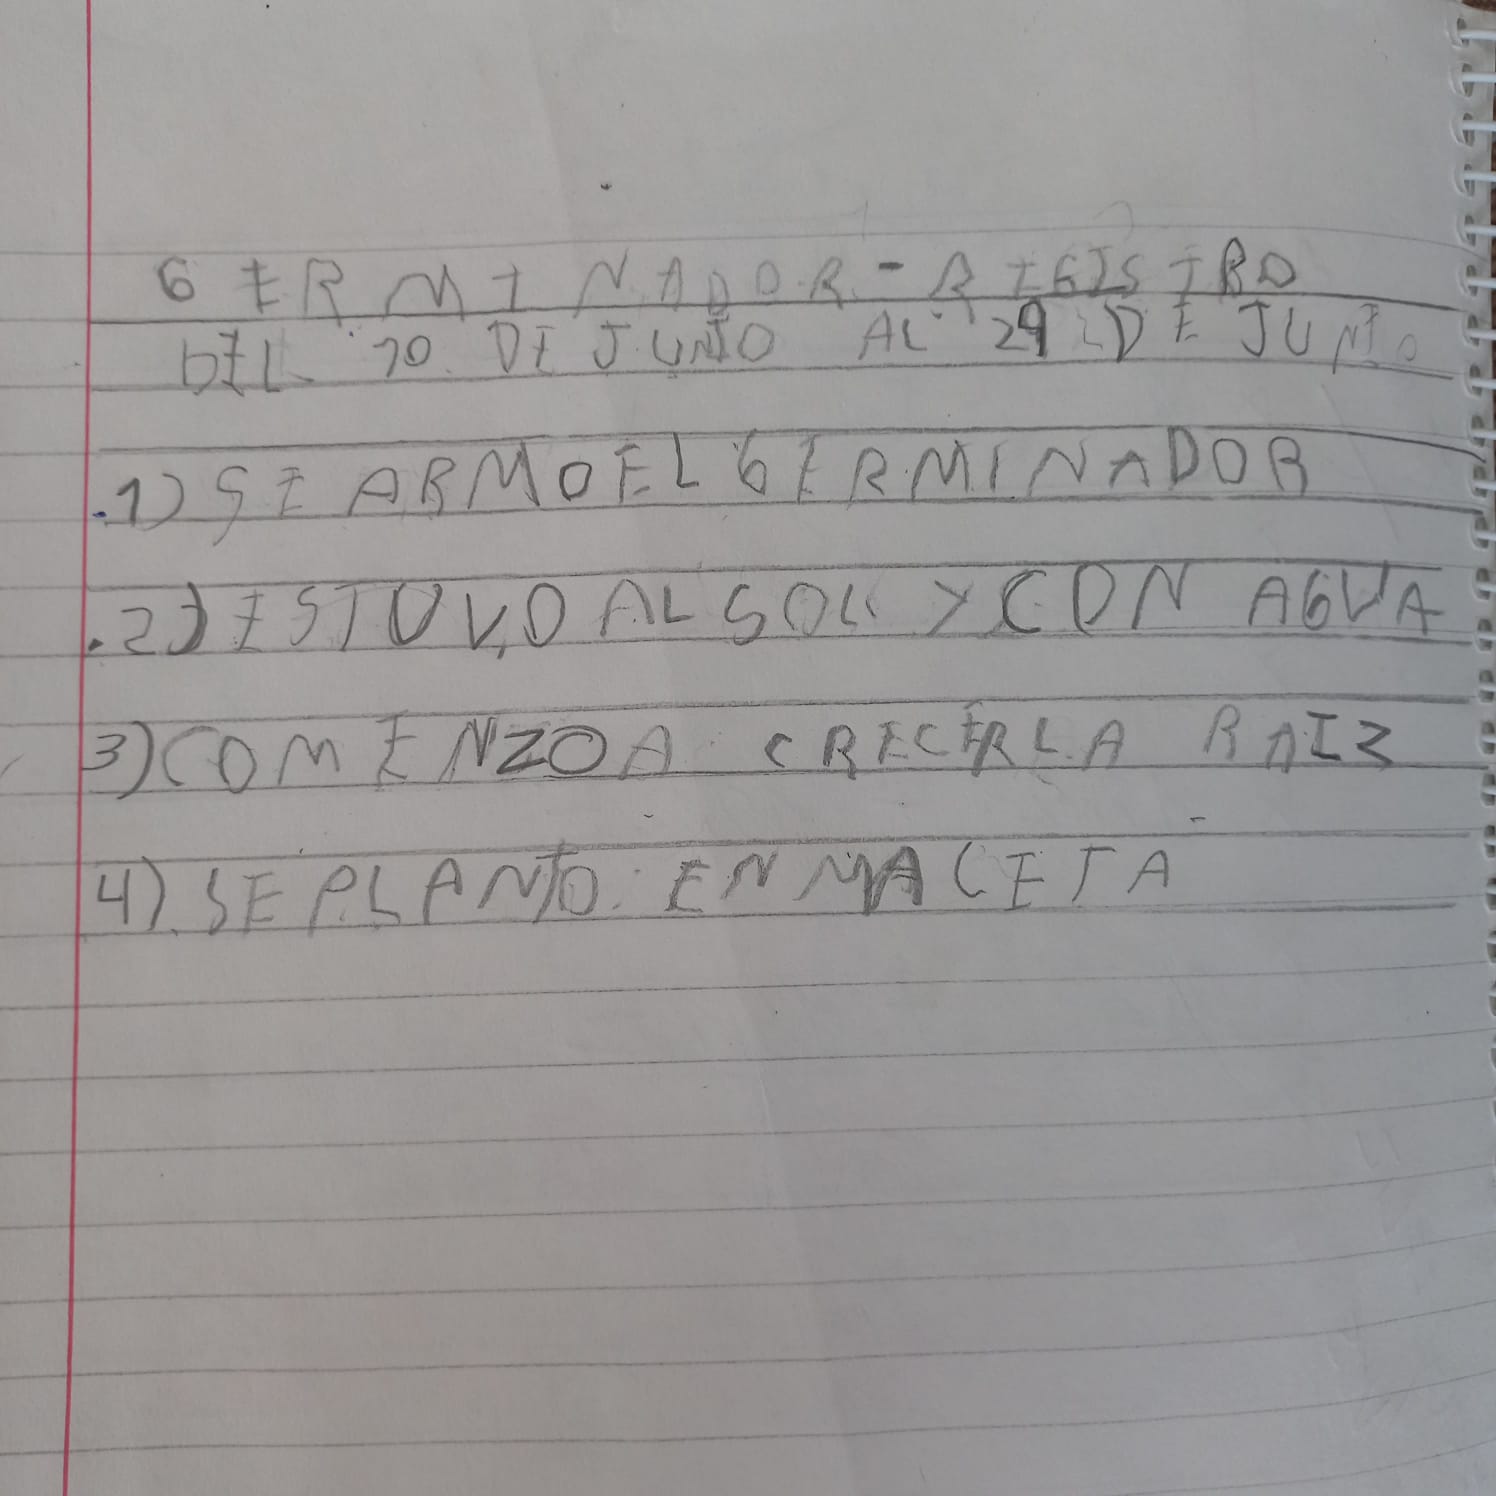 GERMINADOR - REGISTRO
DEL 10 DE JUNIO AL 29 DE JUNIO
1) SE ARMO EL GERMINADOR
2) ESTUVO AL SOL Y CON AGUA
3) COMENZO A CRECER LA RAIZ
4) SE PLANTO EN MACETA